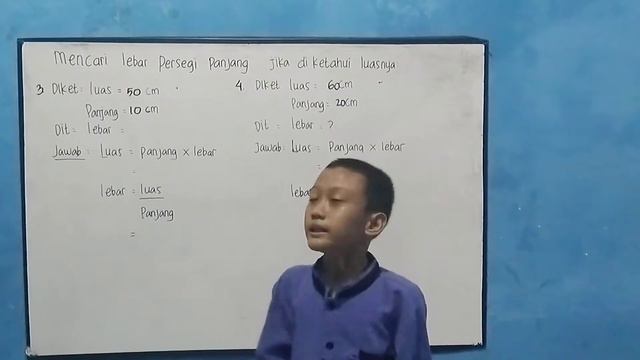 Mencari lebar Persegi Panjang Jika diketahui luasnya
3. Diket: luas = 50 cm
Panjang = 10 cm
Dit = lebar =
Jawab = Luas = Panjang x lebar
=
lebar = luas
Panjang
=
4. Diket luas = 60cm
Panjang = 20cm
Dit = lebar = ?
Jawab: Luas = Panjang x lebar
=